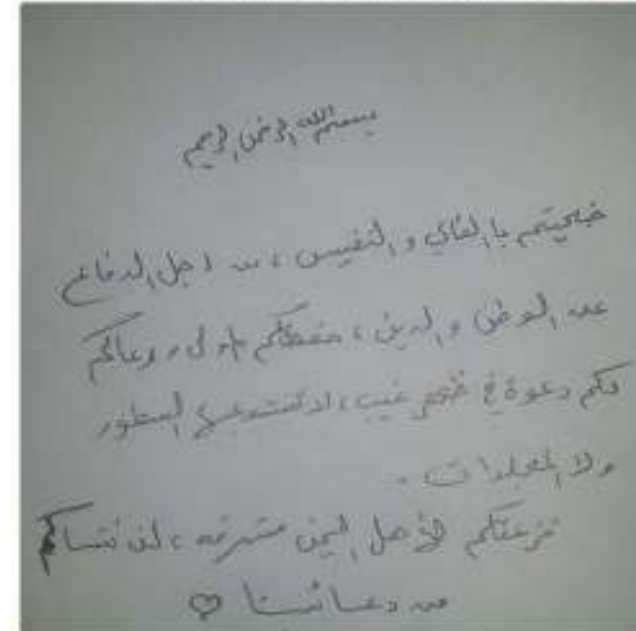 بسم الله الرحمن الرحيم
ضحيتم بالغالي والنفيس، من اجل الدفاع
عن الوطن والدين، حفظكم المولى ورعاكم
لكم دعوة في ظهر غيب، لا تستوعبها السطور
ولا المجلدات.
فزعتكم لأهل اليمن مشرفه، لن ننساكم
من دعائنا ♡